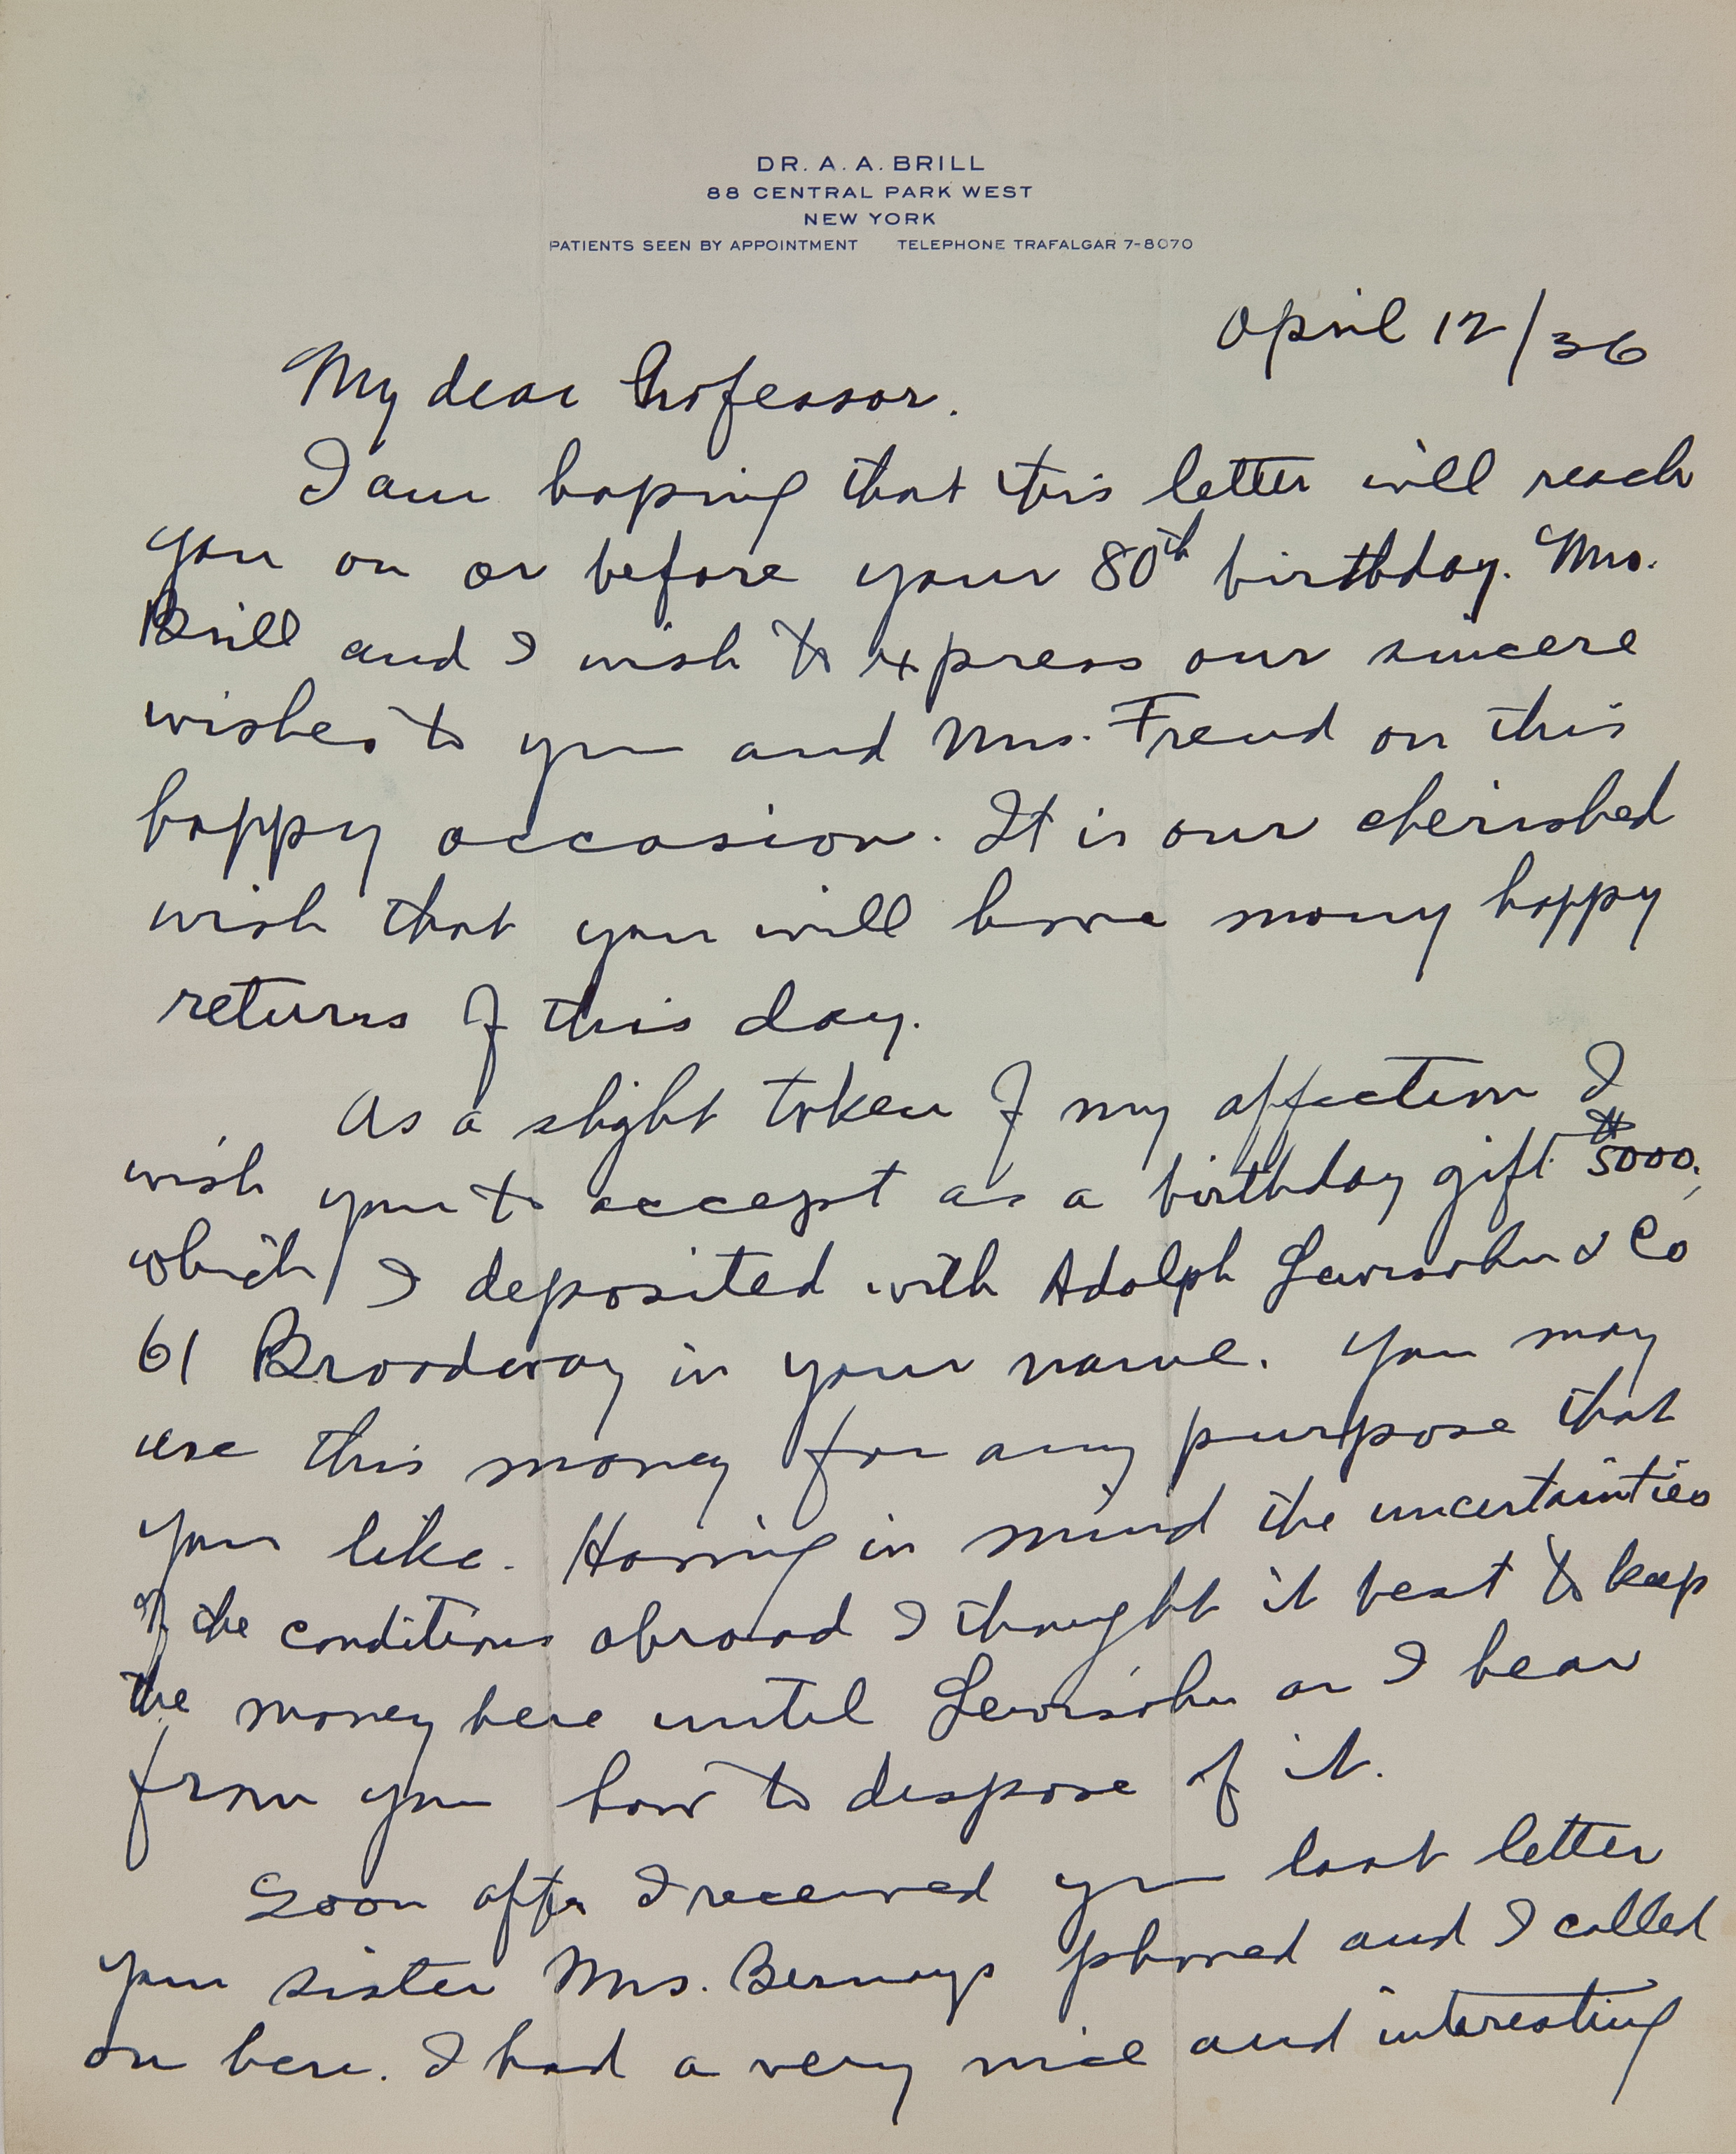 DR. A. A. BRILL
88 CENTRAL PARK WEST
NEW YORK
PATIENTS SEEN BY APPOINTMENT TELEPHONE TRAFALGAR 7-8070
April 12/36
My dear Professor.
I am hoping that this letter will reach
you on or before your 80th birthday. Mrs.
Brill and I wish to express our sincere
wishes to you and Mrs. Freud on this
happy occasion. It is our cherished
wish that you will have many happy
returns of this day.
As a slight token of my affection I
wish you to accept as a birthday gift $5000,
which I deposited with Adolph Lewisohn & Co
61 Broadway in your name. You may
use this money for any purpose that
you like. Having in mind the uncertainties
of the conditions abroad I thought it best to keep
the money here until Lewisohn or I hear
from you how to dispose of it.
Soon after I received your last letter
your sister Mrs. Bernays phoned and I called
on her. I had a very nice and interesting